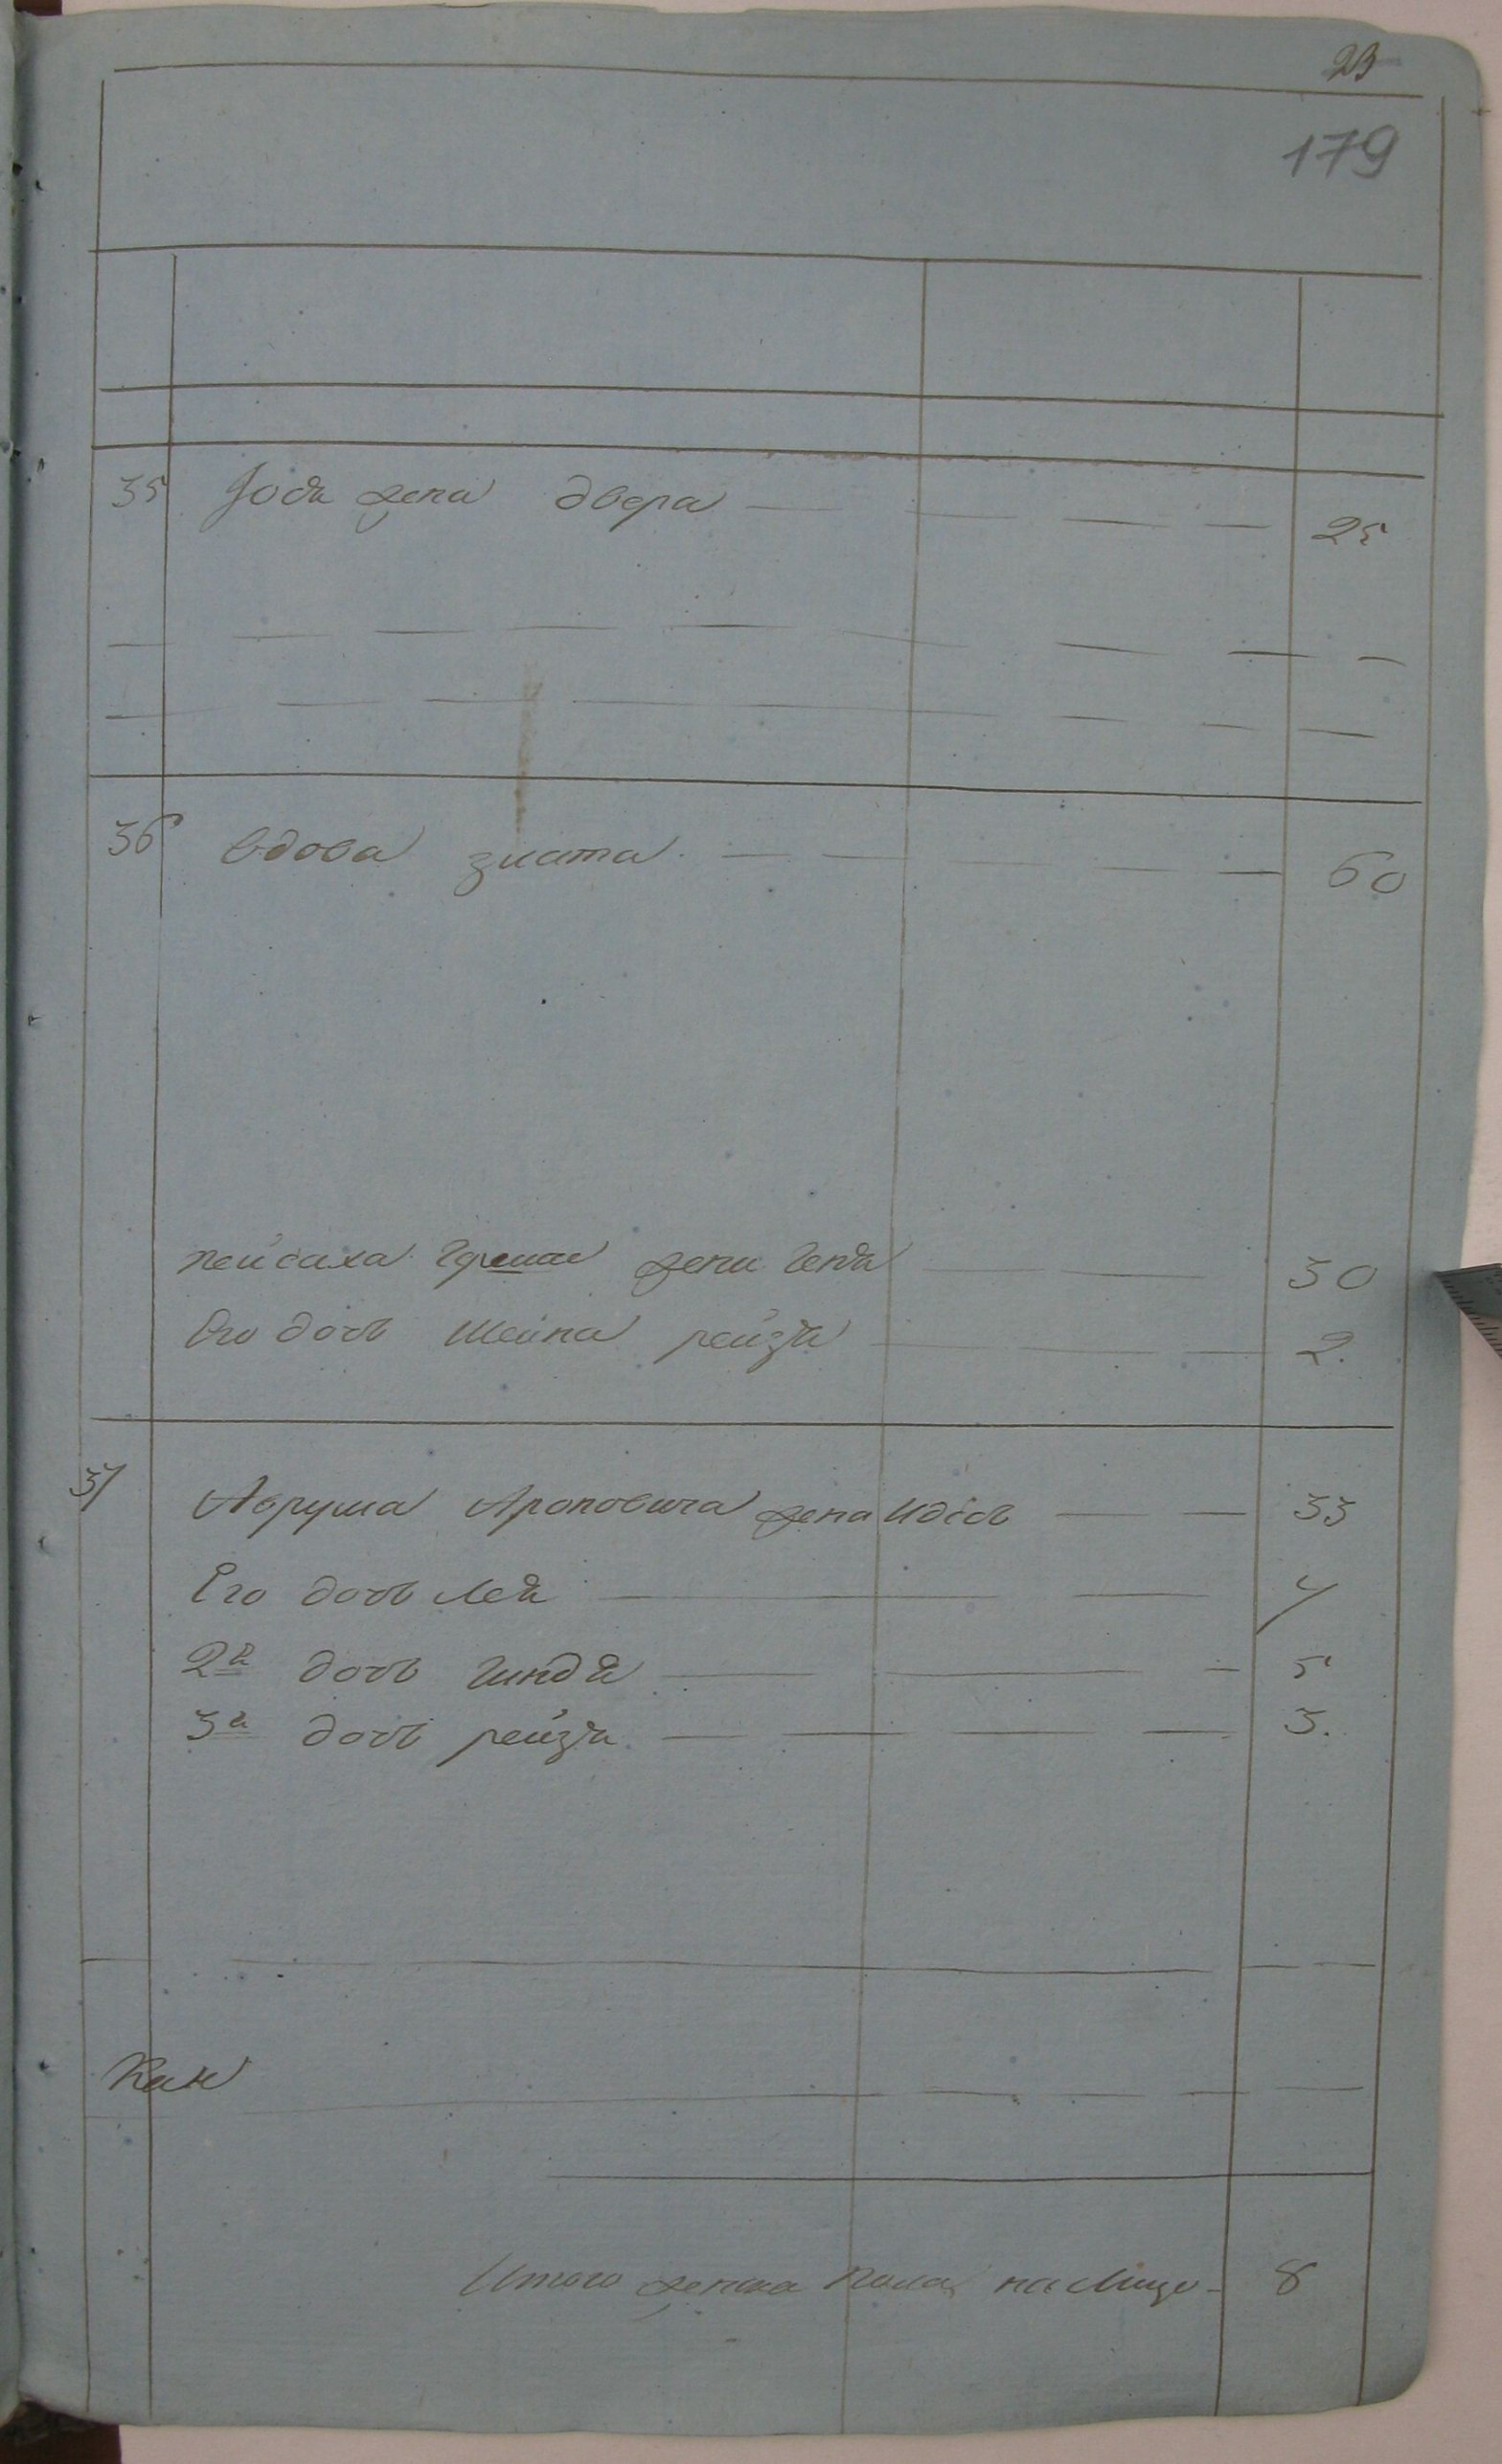 23
179
35 Іодя жена двера 25
36 вдова злата 60
пейсаха жена Геня 30
Его дочь Шейна рейзя 2.
37 Аврума Ароновича жена идісь 33
Его дочь Лея 7
2я дочь гиндя 5
3я дочь рейзя 3.
Итого женска пола на лицо 8